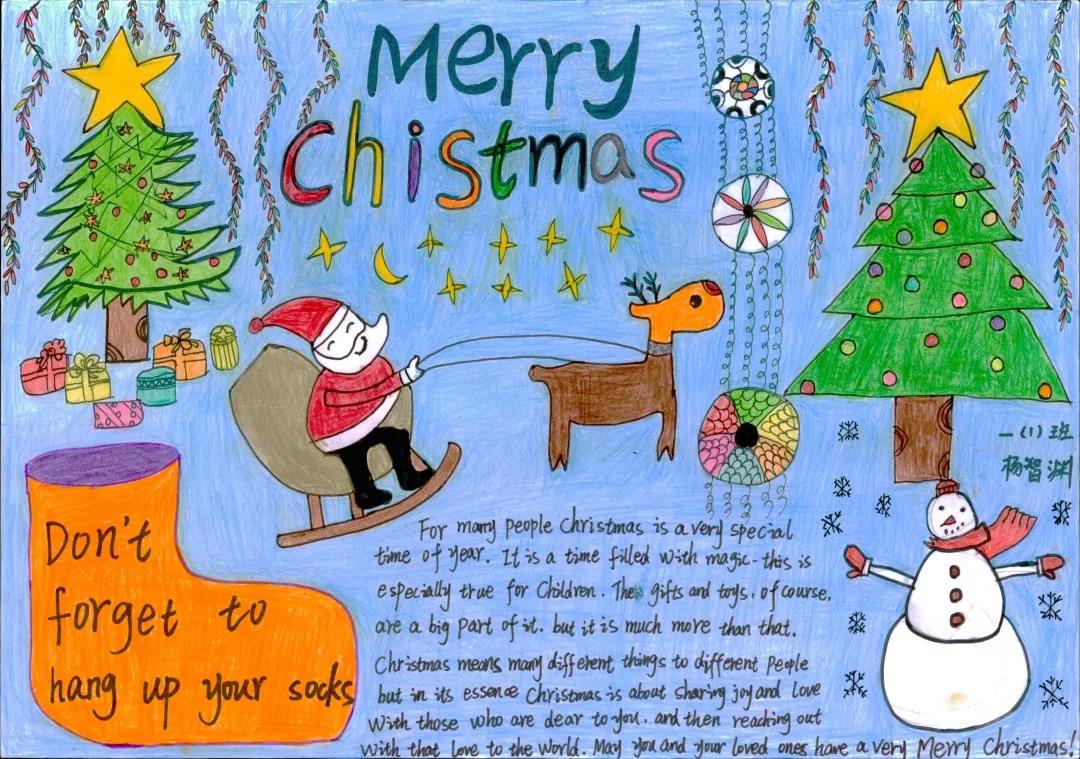 Merry
Chistmas
一(1)班
杨智渊
Don't
forget to
hang up your socks
For many people Christmas is a very special
time of year. It is a time filled with magic-this is
especially true for Children. The gifts and toys, of course,
are a big part of it. but it is much more than that.
Christmas means many different things to different people
but in its essence Christmas is about sharing joy and love
With those who are dear to you. and then reaching out
with that love to the world. May you and your loved ones have a very Merry Christmas!